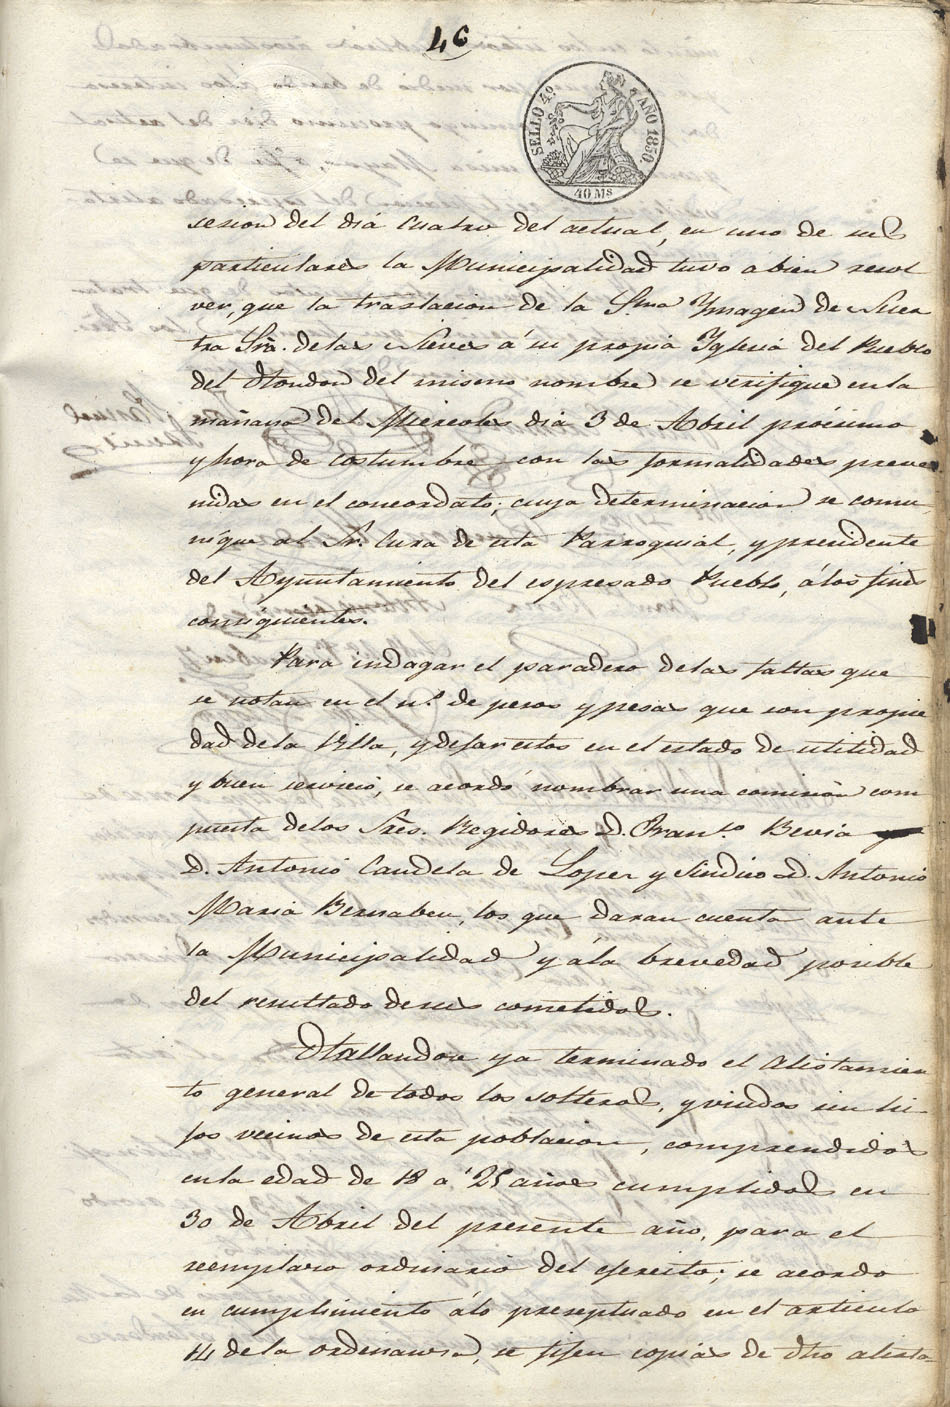 46
SELLO 4º. AÑO 1850.
40 Ms
sesion del dia cuatro del actual, en uno de sus
particulares la Municipalidad tuvo abien resol
ver, que la traslacion de la Sma Ymagen de Nues
tra Sra. delas Nieves á su propia Yglesia del Pueblo
del Hondon del mismo nombre se verifique enla
mañana del Miercoles dia 3 de Abril procsimo
y hora de costumbre con las formalidades preve
nidas en el concordato; cuya determinacion se comu
nique al Sr. Cura de esta Parroquial, y presidente
del Ayuntamiento del espresado Pueblo, álos fines
consiguientes.
Para indagar el paradero delas faltas que
se notan en el n.º de pesos y pesas que son propie
dad dela Villa, y dejar estos en el estado de utilidad
y buen servicio, se acordó nombrar una comision com
puesta delos Sres. Regidores D. Fran.co Bevia
D. Antonio Candela de Lopez y Sindico D. Antonio
Maria Bernabeu, los que daran cuenta ante
la Municipalidad y ála brevedad posible
del resultado desus cometidos.
Hallandose ya terminado el alistamien
to general de todos los solteros, y viudos sin hi
jos vecinos de esta poblacion, comprendidos
enla edad de 18 a 25 años cumplidos en
30 de Abril del presente año, para el
reemplazo ordinario del ejercito; se acordo
en cumplimiento álo preseptuado en el articulo
14 dela ordenansa, se fijen copias de dho alista-